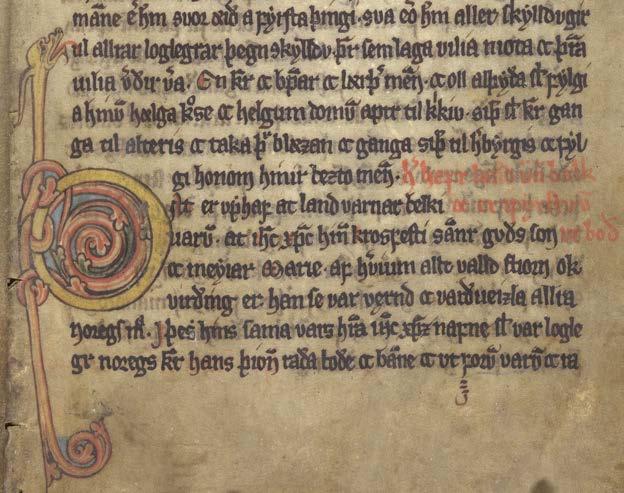 mãne er hm̄ suor æið a fyrſta þingi. sva eo hm̄ aller ſkylldvgir
til allrar loglegrar þegn ſkylldv. þr̄ sem laga vilia niota oc þra
vilia v̄ðir v̄a. En kr̄ oc bꝑar oc lærþ men̄. oc oll alþyða ſl̄ fylgi
a hinv̄ hælga kōſe oc helgum domv̄ aptr til kkiv. siþ ſl̄ kr̄ gan
ga til alteris oc taka þr̄ blæzan oc ganga siþ til hbyrgis oc fyl
gi honom hinir bezto men̄.
er vphaf at land varnar belki
varv̄. at ihc xpc hin̄ kroſfeſti san̄r gvðs ſon
oc meyiar Marie. af hv̄ium allt valld ſtiorn ok
virðing er. han ſe var vernd oc varðueizla allra
noregs m̄. I þes hins ſama vars hr̄a ihc xpz nafne ſl̄ var logle
gr noregs kr̄ hans þion̄ raða boðe oc bāne oc vt forv̄ varv̄ oc ra